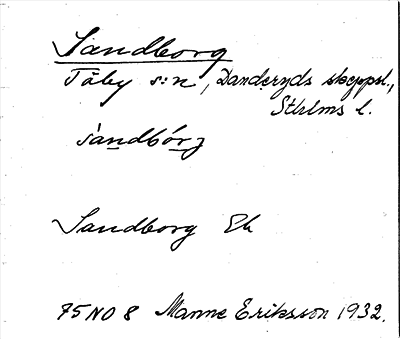 Sandborg
Täby s:n, Danderyds skeppsl.,
Sthlms l.
sandbórj
Sandborg Ek
75 NO 8 Manne Eriksson 1932.